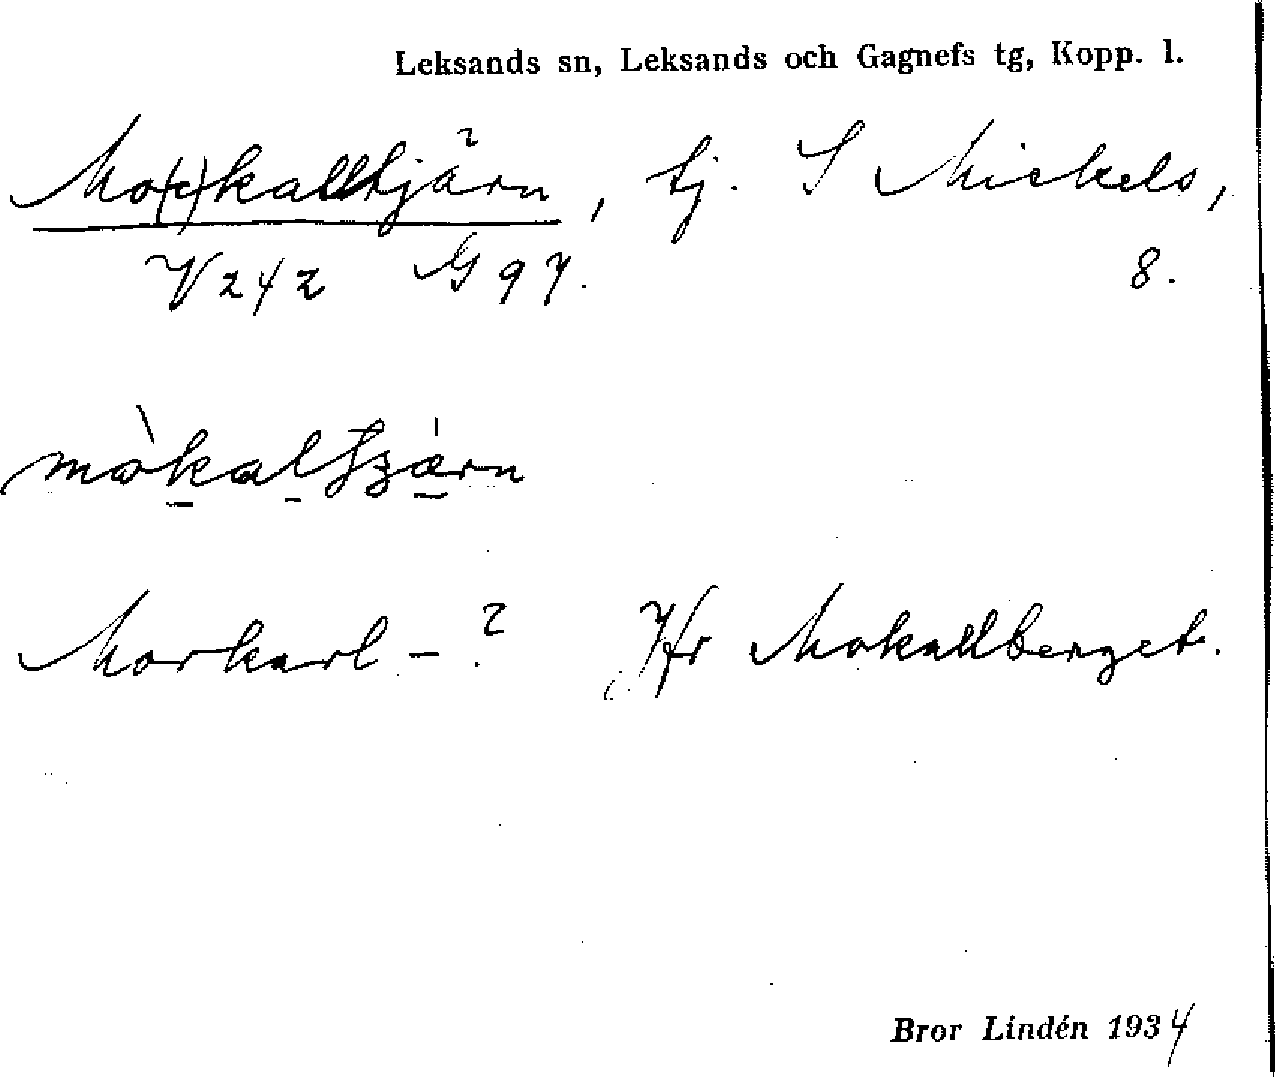 Leksands sn, Leksands och Gagnefs tg, Kopp. l.
Mo(c)kalltjärn, tj. S Mickels,
V242 G97. 8.
mòkaltjärn
Morkarl-? Jfr Mokallberget.
Bror Lindén 1934